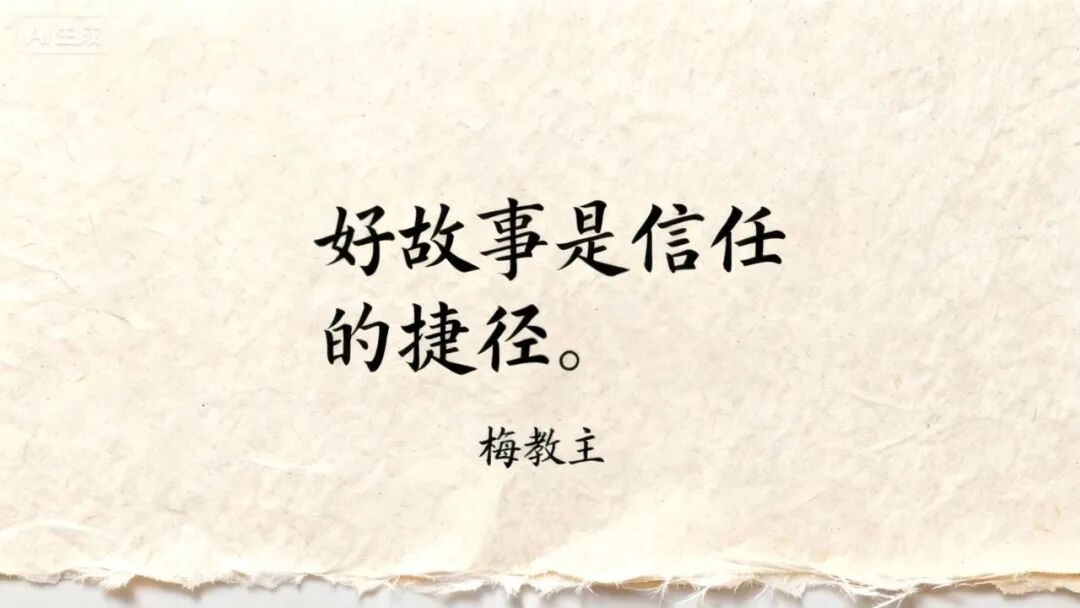 AI生成
好故事是信任
的捷径。
梅教主